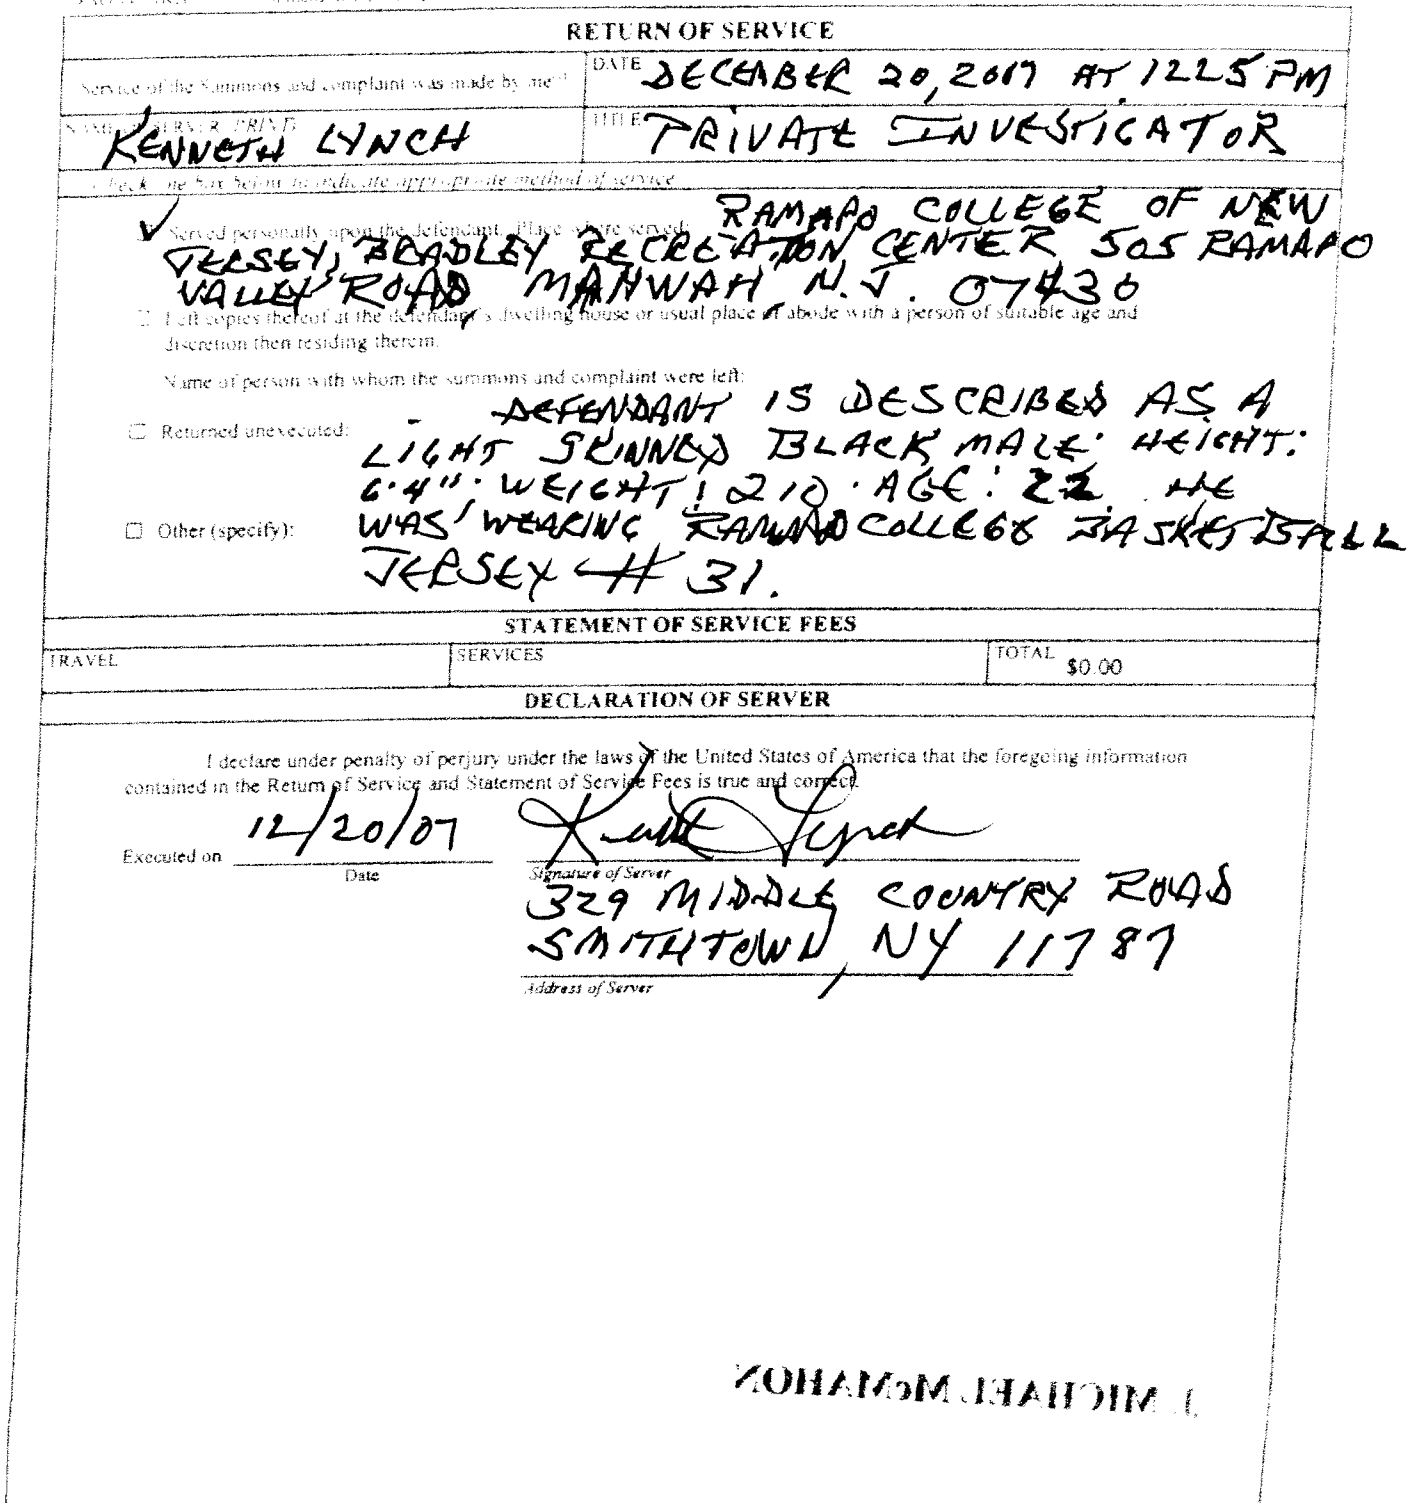 RETURN OF SERVICE
Service of the Summons and complaint was made by me
DATE DECEMBER 20, 2007 AT 1225 PM
NAME OF SERVER (PRINT)
KENNETH LYNCH
TITLE PRIVATE INVESTIGATOR
Check one box below to indicate appropriate method of service
Served personally upon the defendant. Place where served: RAMAPO COLLEGE OF NEW
JERSEY, BRADLEY RECREATION CENTER 505 RAMAPO
VALLEY ROAD MAHWAH N.J. 07430
☐ Left copies thereof at the defendant's dwelling house or usual place of abode with a person of suitable age and
discretion then residing therein.
Name of person with whom the summons and complaint were left:
- DEFENDANT IS DESCRIBED AS A
☐ Returned unexecuted:
LIGHT SKINNED BLACK MALE. HEIGHT:
6'4". WEIGHT: 210. AGE: 22. HE
☐ Other (specify): WAS WEARING RAMAPO COLLEGE BASKETBALL
JERSEY # 31.
STATEMENT OF SERVICE FEES
TRAVEL SERVICES TOTAL $0.00
DECLARATION OF SERVER
I declare under penalty of perjury under the laws of the United States of America that the foregoing information
contained in the Return of Service and Statement of Service Fees is true and correct.
Executed on 12/20/07 Kenneth Lynch
Date Signature of Server
329 MIDDLE COUNTRY ROAD
SMITHTOWN, NY 11787
Address of Server
J. MICHAEL McMAHON